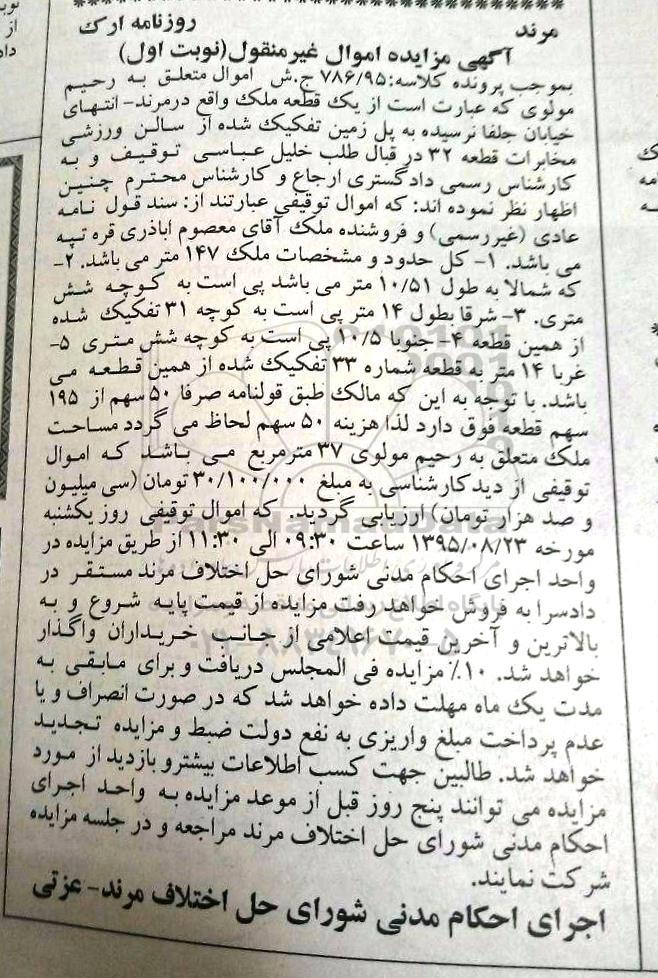 مرند
روزنامه ارک
آگهی مزایده اموال غیرمنقول(نوبت اول)
بموجب پرونده کلاسه:۷۸۶/۹۵ ج.ش اموال متعلق به رحیم
مولوی که عبارت است از یک قطعه ملک واقع درمرند-انتهای
خیابان جلفا نرسیده به پل زمین تفکیک شده از سالن ورزشی
مخابرات قطعه ۳۲ در قبال طلب خلیل عباسی توقیف و به
کارشناس رسمی دادگستری ارجاع و کارشناس محترم چنین
اظهار نظر نموده اند: که اموال توقیفی عبارتند از: سند قول نامه
عادی (غیررسمی) و فروشنده ملک آقای معصوم اباذری قره تپه
می باشد. ۱- کل حدود و مشخصات ملک ۱۴۷ متر می باشد. ۲-
که شمالا به طول ۱۰/۵۱ متر می باشد پی است به کوچه شش
متری. ۳- شرقا بطول ۱۴ متر پی است به کوچه ۳۱ تفکیک شده
از همین قطعه ۴- جنوبا ۱۰/۵ پی است به کوچه شش متری ۵-
غربا ۱۴ متر به قطعه شماره ۳۳ تفکیک شده از همین قطعه می
باشد. با توجه به این که مالک طبق قولنامه صرفا ۵۰ سهم از ۱۹۵
سهم قطعه فوق دارد لذا هزینه ۵۰ سهم لحاظ می گردد مساحت
ملک متعلق به رحیم مولوی ۳۷ مترمربع می باشد که اموال
توقیفی از دید کارشناسی به مبلغ ۳۰/۱۰۰/۰۰۰ تومان (سی میلیون
و صد هزار تومان) ارزیابی گردید. که اموال توقیفی روز یکشنبه
مورخه ۱۳۹۵/۰۸/۲۳ ساعت ۰۹:۳۰ الی ۱۱:۳۰ از طریق مزایده در
واحد اجرای احکام مدنی شورای حل اختلاف مرند مستقر در
دادسرا به فروش خواهد رفت مزایده از قیمت پایه شروع و به
بالاترین و آخرین قیمت اعلامی از جانب خریداران واگذار
خواهد شد. ۱۰٪ مزایده فی المجلس دریافت و برای مابقی به
مدت یک ماه مهلت داده خواهد شد که در صورت انصراف و یا
عدم پرداخت مبلغ واریزی به نفع دولت ضبط و مزایده تجدید
خواهد شد. طالبین جهت کسب اطلاعات بیشترو بازدید از مورد
مزایده می توانند پنج روز قبل از موعد مزایده به واحد اجرای
احکام مدنی شورای حل اختلاف مرند مراجعه و در جلسه مزایده
شرکت نمایند.
اجرای احکام مدنی شورای حل اختلاف مرند- عزتی
ParsNamadData
۰۲۱-۸۸۳۴۹۶۷۰-۵